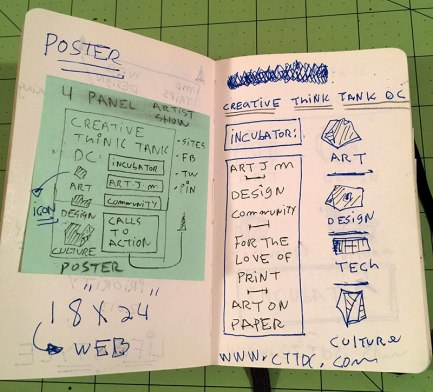 POSTER
4 PANEL ARTIST SHOW
CREATIVE
THINK TANK
DC:
INCUBATOR
ART J. M
COMMUNITY
CALLS
TO
ACTION
ART
DESIGN
CULTURE
ICON
· SITES
· FB
· TW
· PIN
POSTER
18" X 24"
WEB
CREATIVE THINK TANK DC
INCUBATOR:
ART J M
DESIGN
COMMUNITY
FOR THE
LOVE OF
PRINT
ART ON
PAPER
ART
DESIGN
TECH
CULTURE
WWW.CTTDC.COM